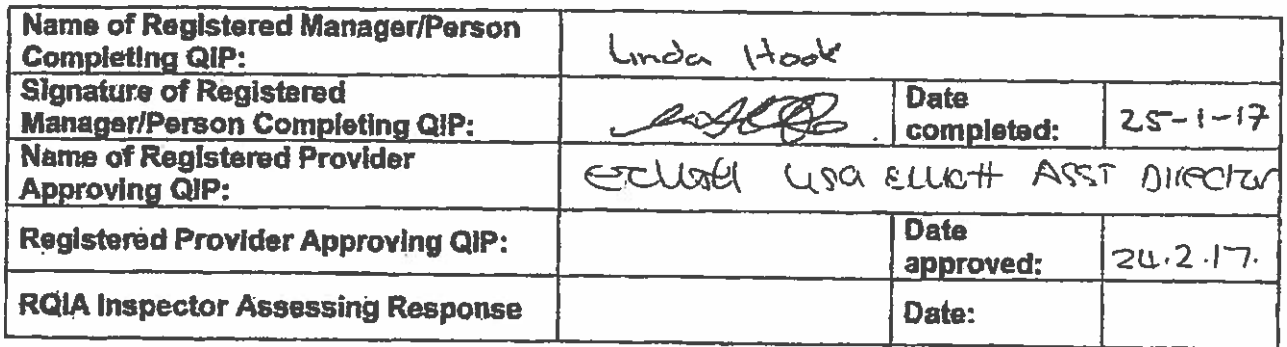 Name of Registered Manager/Person
Completing QIP:
Linda Hook
Signature of Registered
Manager/Person Completing QIP:
Date
completed:
25-1-17
Name of Registered Provider
Approving QIP:
Lisa Elliott ASST Director
Registered Provider Approving QIP:
Date
approved:
24.2.17.
RQIA Inspector Assessing Response
Date: